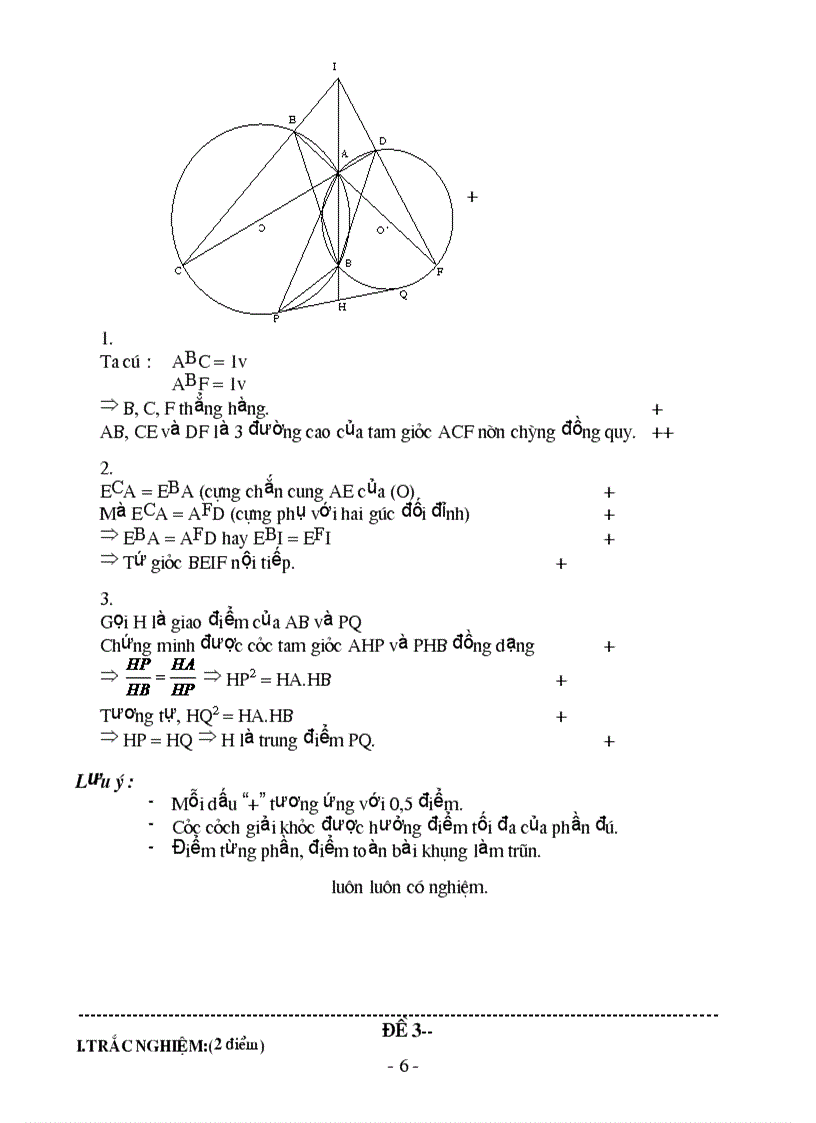 I
B
D
A
+
O
O'
C
B
F
Q
P
H
1.
Ta cú : ABC = 1v
ABF = 1v
⇒ B, C, F thẳng hàng. +
AB, CE và DF là 3 đường cao của tam giỏc ACF nờn chỳng đồng quy. ++
2.
ECA = EBA (cựng chắn cung AE của (O) +
Mà ECA = AFD (cựng phụ với hai gúc đối đỉnh) +
⇒ EBA = AFD hay EBI = EFI +
⇒ Tứ giỏc BEIF nội tiếp. +
3.
Gọi H là giao điểm của AB và PQ
Chứng minh được cỏc tam giỏc AHP và PHB đồng dạng +
⇒ HP/HB = HA/HP ⇒ HP² = HA.HB +
Tương tự, HQ² = HA.HB +
⇒ HP = HQ ⇒ H là trung điểm PQ. +
Lưu ý :
- Mỗi dấu “+” tương ứng với 0,5 điểm.
- Cỏc cỏch giải khỏc được hưởng điểm tối đa của phần đú.
- Điểm từng phần, điểm toàn bài khụng làm trũn.
luôn luôn có nghiệm.
ĐỀ 3--
I.TRẮC NGHIỆM:(2 điểm)
- 6 -